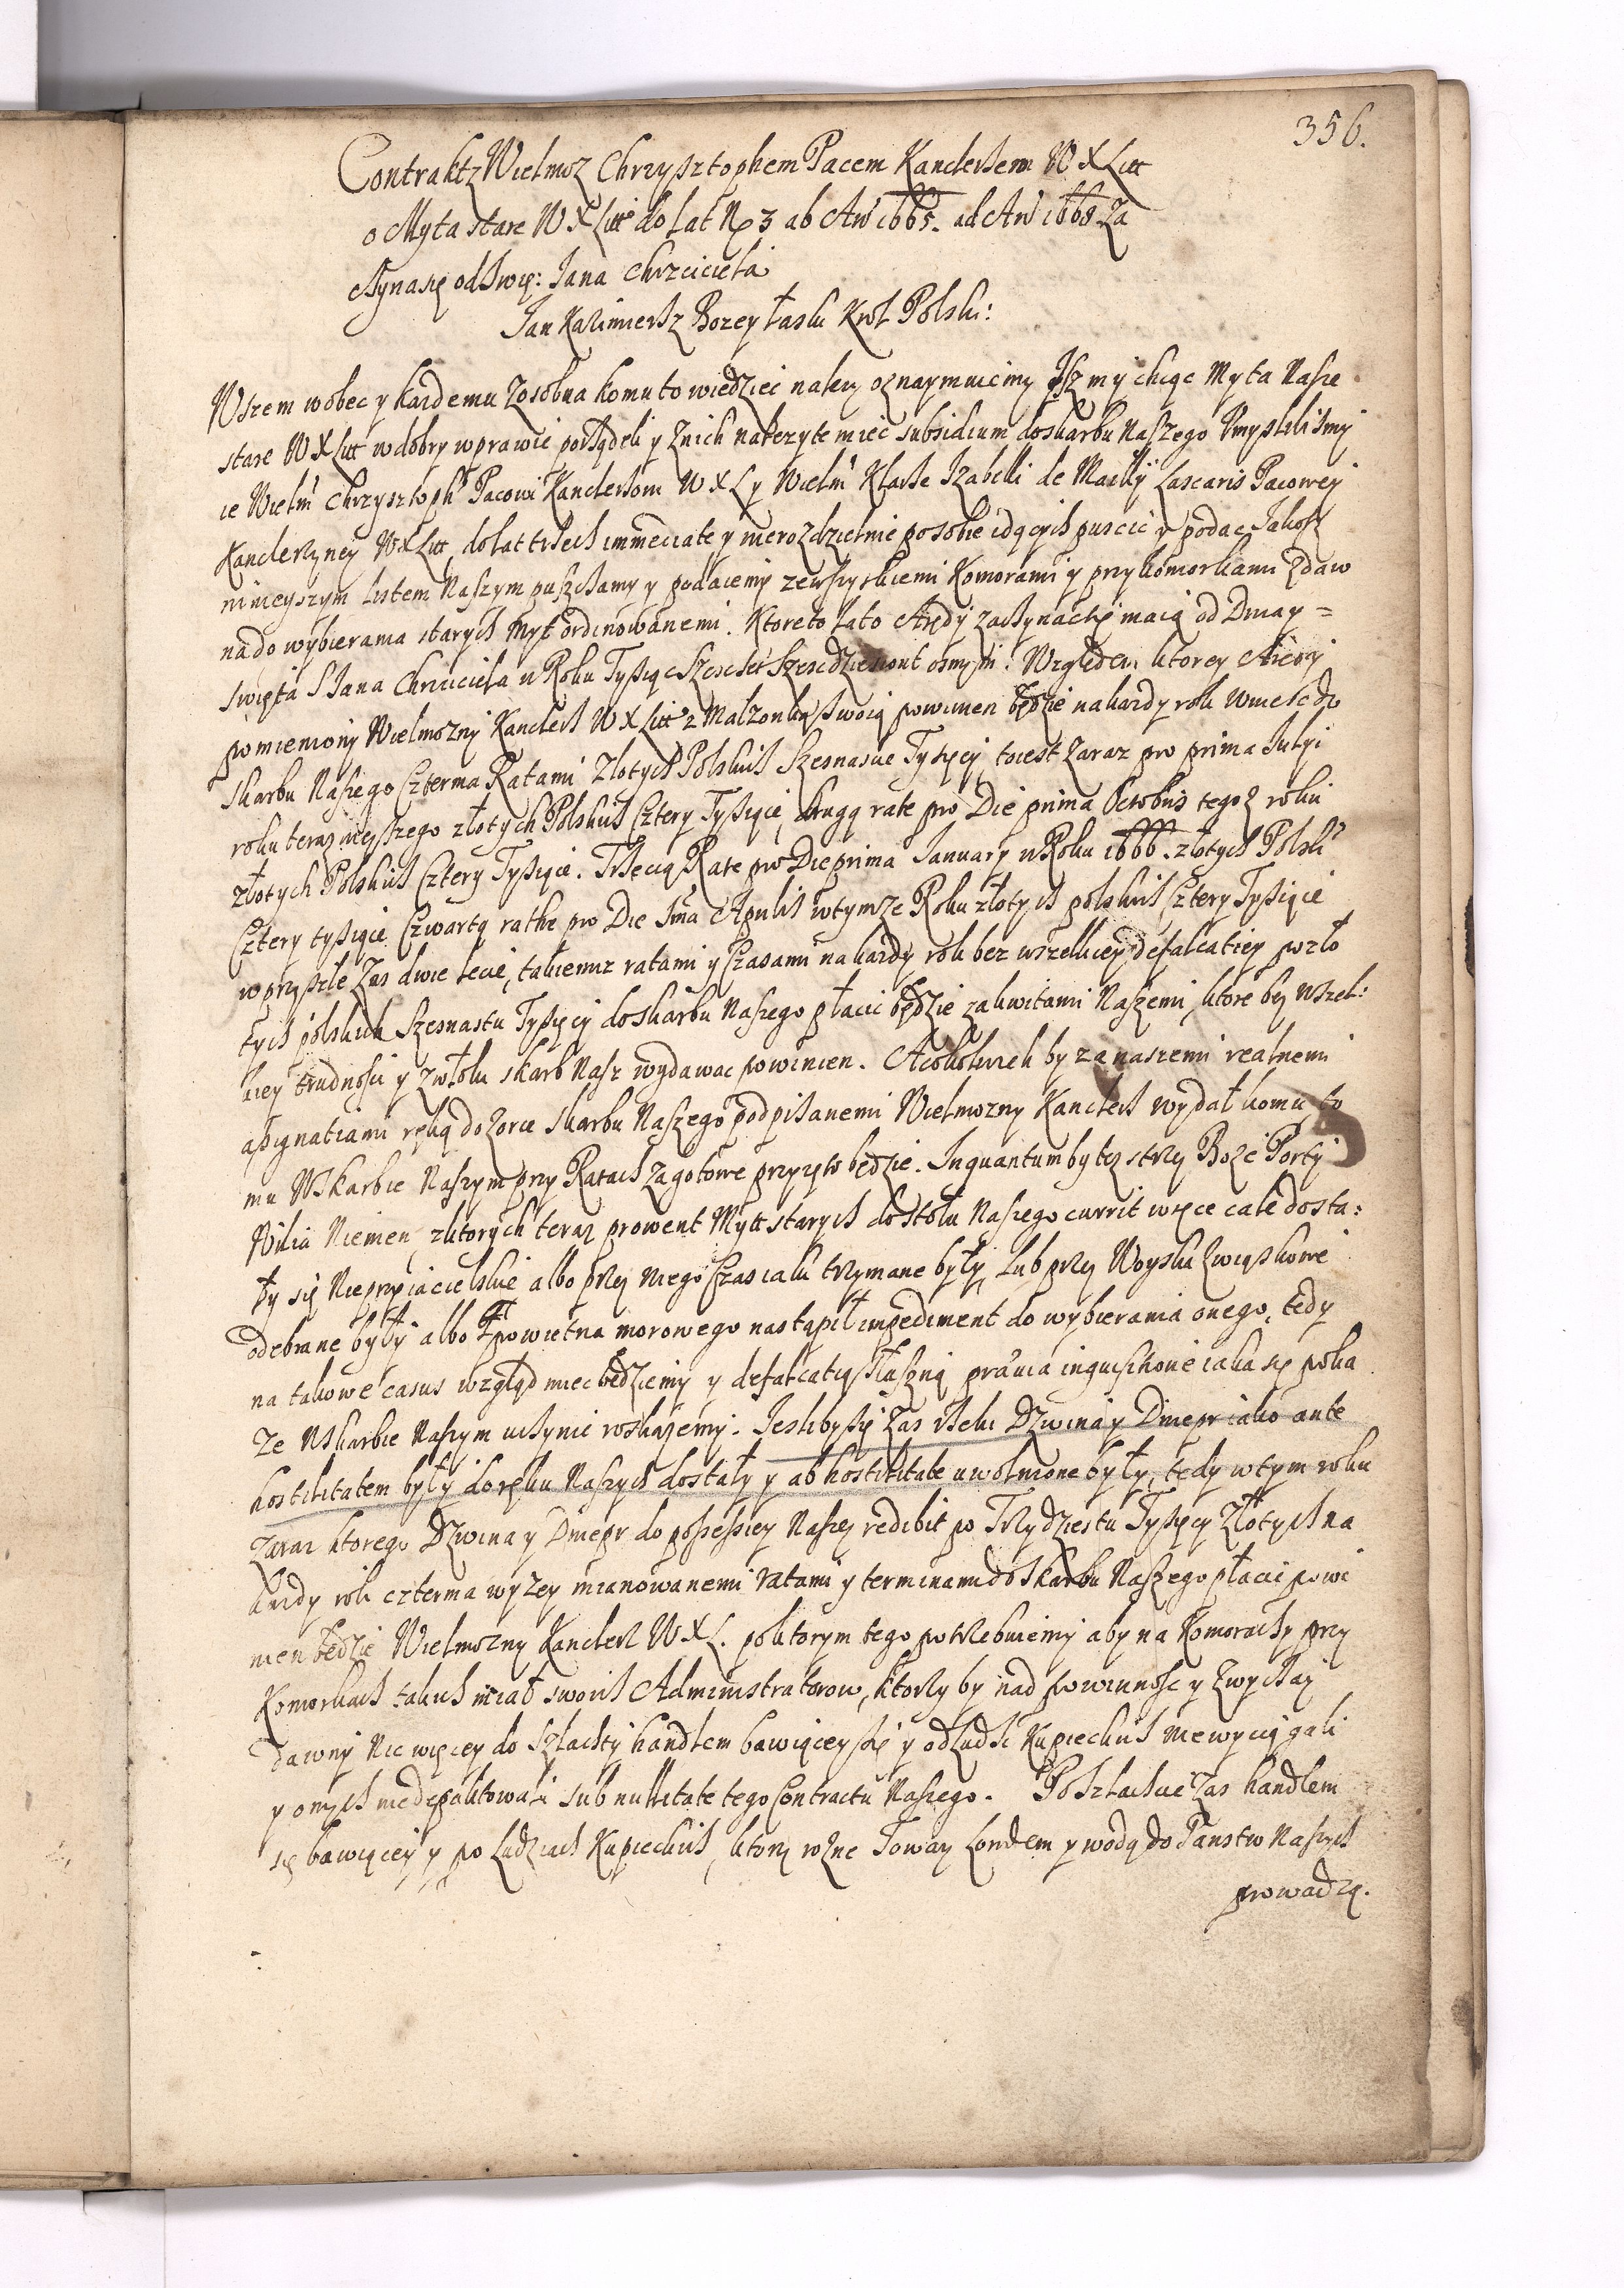 356.
Contrakt z Wielmoz Chrzysztophem Pacem Kanclerzem W X Litt
o Myta stare W X Litt do lat No 3 ab Ao 1665. ad Ao 1668 Za
czyna się od Swię: Jana Chrzciciela
Jan Kazimiersz Bozey łaski Krol Polski:
Wszem wobec y kazdemu zosobna komu to wiedziec nalezy oznaymuiemy Isz my chcąc Myta Nasze
stare W X Litt w dobry wprawic porządek y znich nalezyte miec subsidium do skarbu Naszego Vmysliliśmy
ie Wielm Chrzysztoph Pacowi Kanclerzowi W X L y Wielm Klarze Izabelli de Mailly Lascaris Pacowey
Kanclerzyney W X Litt, do lat trzech immediate y nierozdzielnie po sobie idących puscic y podac Jakosz
ninieyszym listem Naszym puszczamy y podaiemy zewszystkiemi Komorami y przykomorkami zdaw
na do wybierania starych Myt ordinowanemi. Ktore to lato Arędy zaczynac się maią od Dnia y =
swięta S Jana Chrzciciela w Roku Tysiąc Szescset Szescdziesiont osmym. Względem ktorey Arędy
pomieniony Wielmozny Kanclerz W X Litt z Malzonką swoią powinien będzie na kazdy rok wniesc do
skarbu Naszego Czterma Ratami Zlotych Polskich Szesnascie Tysięcy, to iest zaraz pro prima Julyi
roku teraznieyszego złotych Polskich Cztery Tysiące, drugą rate pro Die prima Octobris tegoz roku
złotych Polskich Cztery Tysiące. Trzecią Rate pro Die prima January w Roku 1666. złotych Polski
Cztery tysiące Czwartą rathe pro Die 1ma Aprilis w tymze Roku złotych polskich Cztery Tysiące
w przyszłe zas dwie lecie, takiemisz ratami y Czasami na kazdy rok bez wszelkiey defalcatiey po zło
tych polskich Szesnastu Tysięcy do skarbu Naszego płacic będzie za kwitami Naszemi, ktore bez wszel:
kiey trudności y zwłoki skarb Nasz wydawac powinien. A cokolwiek by za naszemi realnemi
assignatiami ręką dozorce skarbu Naszego podpisanemi Wielmozny Kanclerz wydał komu to
mu W Skarbie Naszym przy Ratach za gotowe przyięto będzie. Inquantum by tez strzez Boze Porty
Wilia Niemen, z ktorych teraz prowent Mytt starych do stołu Naszego currit w ręce cale dosta:
ły się Nieprzyiacielskie albo przez niego Czas iaki trzymane były, lub przez Woyska Związkowe
odebrane były albo z powietrza morowego nastąpił impediment do wybierania onego, tedy
na takowe casus wzgląd miec będziemy y defalcatią słuszną praevia inquisitione iaka się poka
ze W skarbie Naszym uczynic roskazemy. Jesliby się zas rzeki Dzwina y Dniepr iako ante
hostilitatem były do ręku Naszych dostały y ab hostilitate uwolnione były, tedy w tym roku
zaraz ktorego Dzwina y Dniepr do possessiey Naszey redibit po Trzydziestu Tysięcy Złotych na
kazdy rok czterma wyzey mianowanemi ratami y terminami do Skarbu Naszego płacic powi
nien będzie Wielmozny Kanclerz W X L. po ktorym tego potrzebuiemy aby na Komorach y przy
Komorkach takich miał swoich Administratorow, ktorzy by nad powinnosc y zwyczay
dawny nic więcey do Szlachty handlem bawiącey się y od ludzi Kupieckich nie wyciągali
y onych nie depaktowali sub nullitate tego Contractu Naszego. Po Szlachcie zas handlem
się bawiącey y po ludziach Kupieckich, ktorzy rozne Towary londem y wodą do Panstw Naszych
prowadzą.